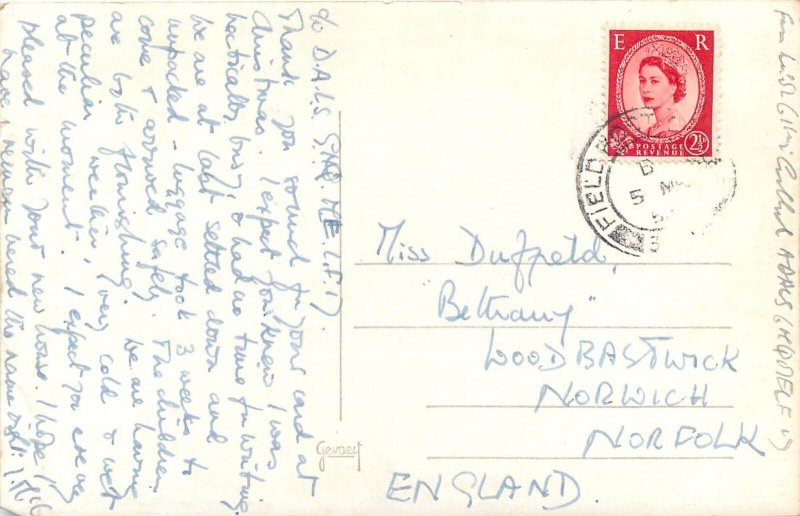 c/o D.A.L.S G.H.Q. M.E.L.F. 17.
Thank you so much for your card at
Christmas. I expect you knew I was
hectically busy & had no time for writing.
we are at last settled down and
unpacked - luggage took 3 weeks to
come & arrived safely. The children
are both flourishing. we are having
peculiar weather, very cold & wet
at the moment. I expect you are very
pleased with your new house. I hope I
have remembered the name right!
E R
POSTAGE
REVENUE
2½D
FIELD POST
5
Miss Duffield,
"Bethany"
WOODBASTWICK
NORWICH
NORFOLK
ENGLAND.
Gevaert